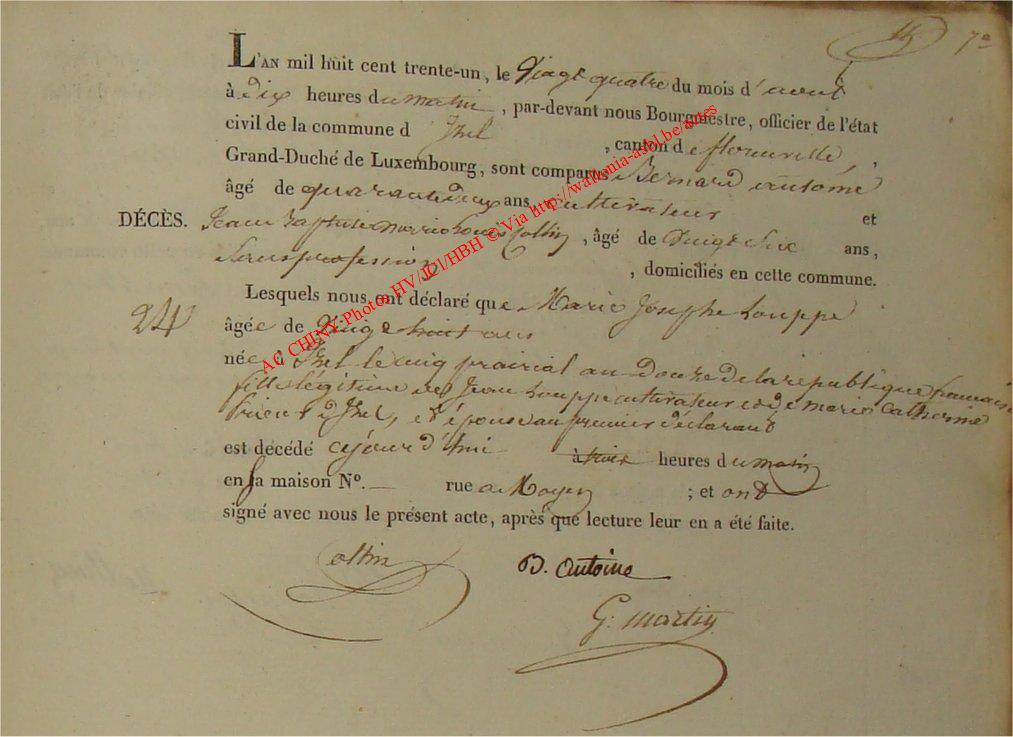 7e
L'AN mil huit cent trente-un, le Vingt quatre du mois d'aout
à dix heures du matin, par-devant nous Bourgmestre, officier de l'état
civil de la commune d Izel, canton de florenville,
Grand-Duché de Luxembourg, sont comparus Bernard antoine
âgé de quarante deux ans, cultivateur et
DÉCÈS. Jean baptiste marie Louis Collin, âgé de Vingt Six ans,
Sans profession, domiciliés en cette commune.
Lesquels nous ont déclaré que Marie Josephe Louppe
24 âgée de Vingt huit ans
née à Izel le cinq prairial an Douze de la republique francaise
fille légitime de Jean Louppe cultivateur et de marie Catherine
d'Izel, et épouse au premier déclarant
est décédé cejourd'hui à trois heures du matin
en sa maison N°. — rue de Moyen ; et ont
signé avec nous le présent acte, après que lecture leur en a été faite.
Collin B. Antoine
G. Martin
AC CHINY-Photos HV/JCl/HBH © Via http://wallonia-asbl.be/actes